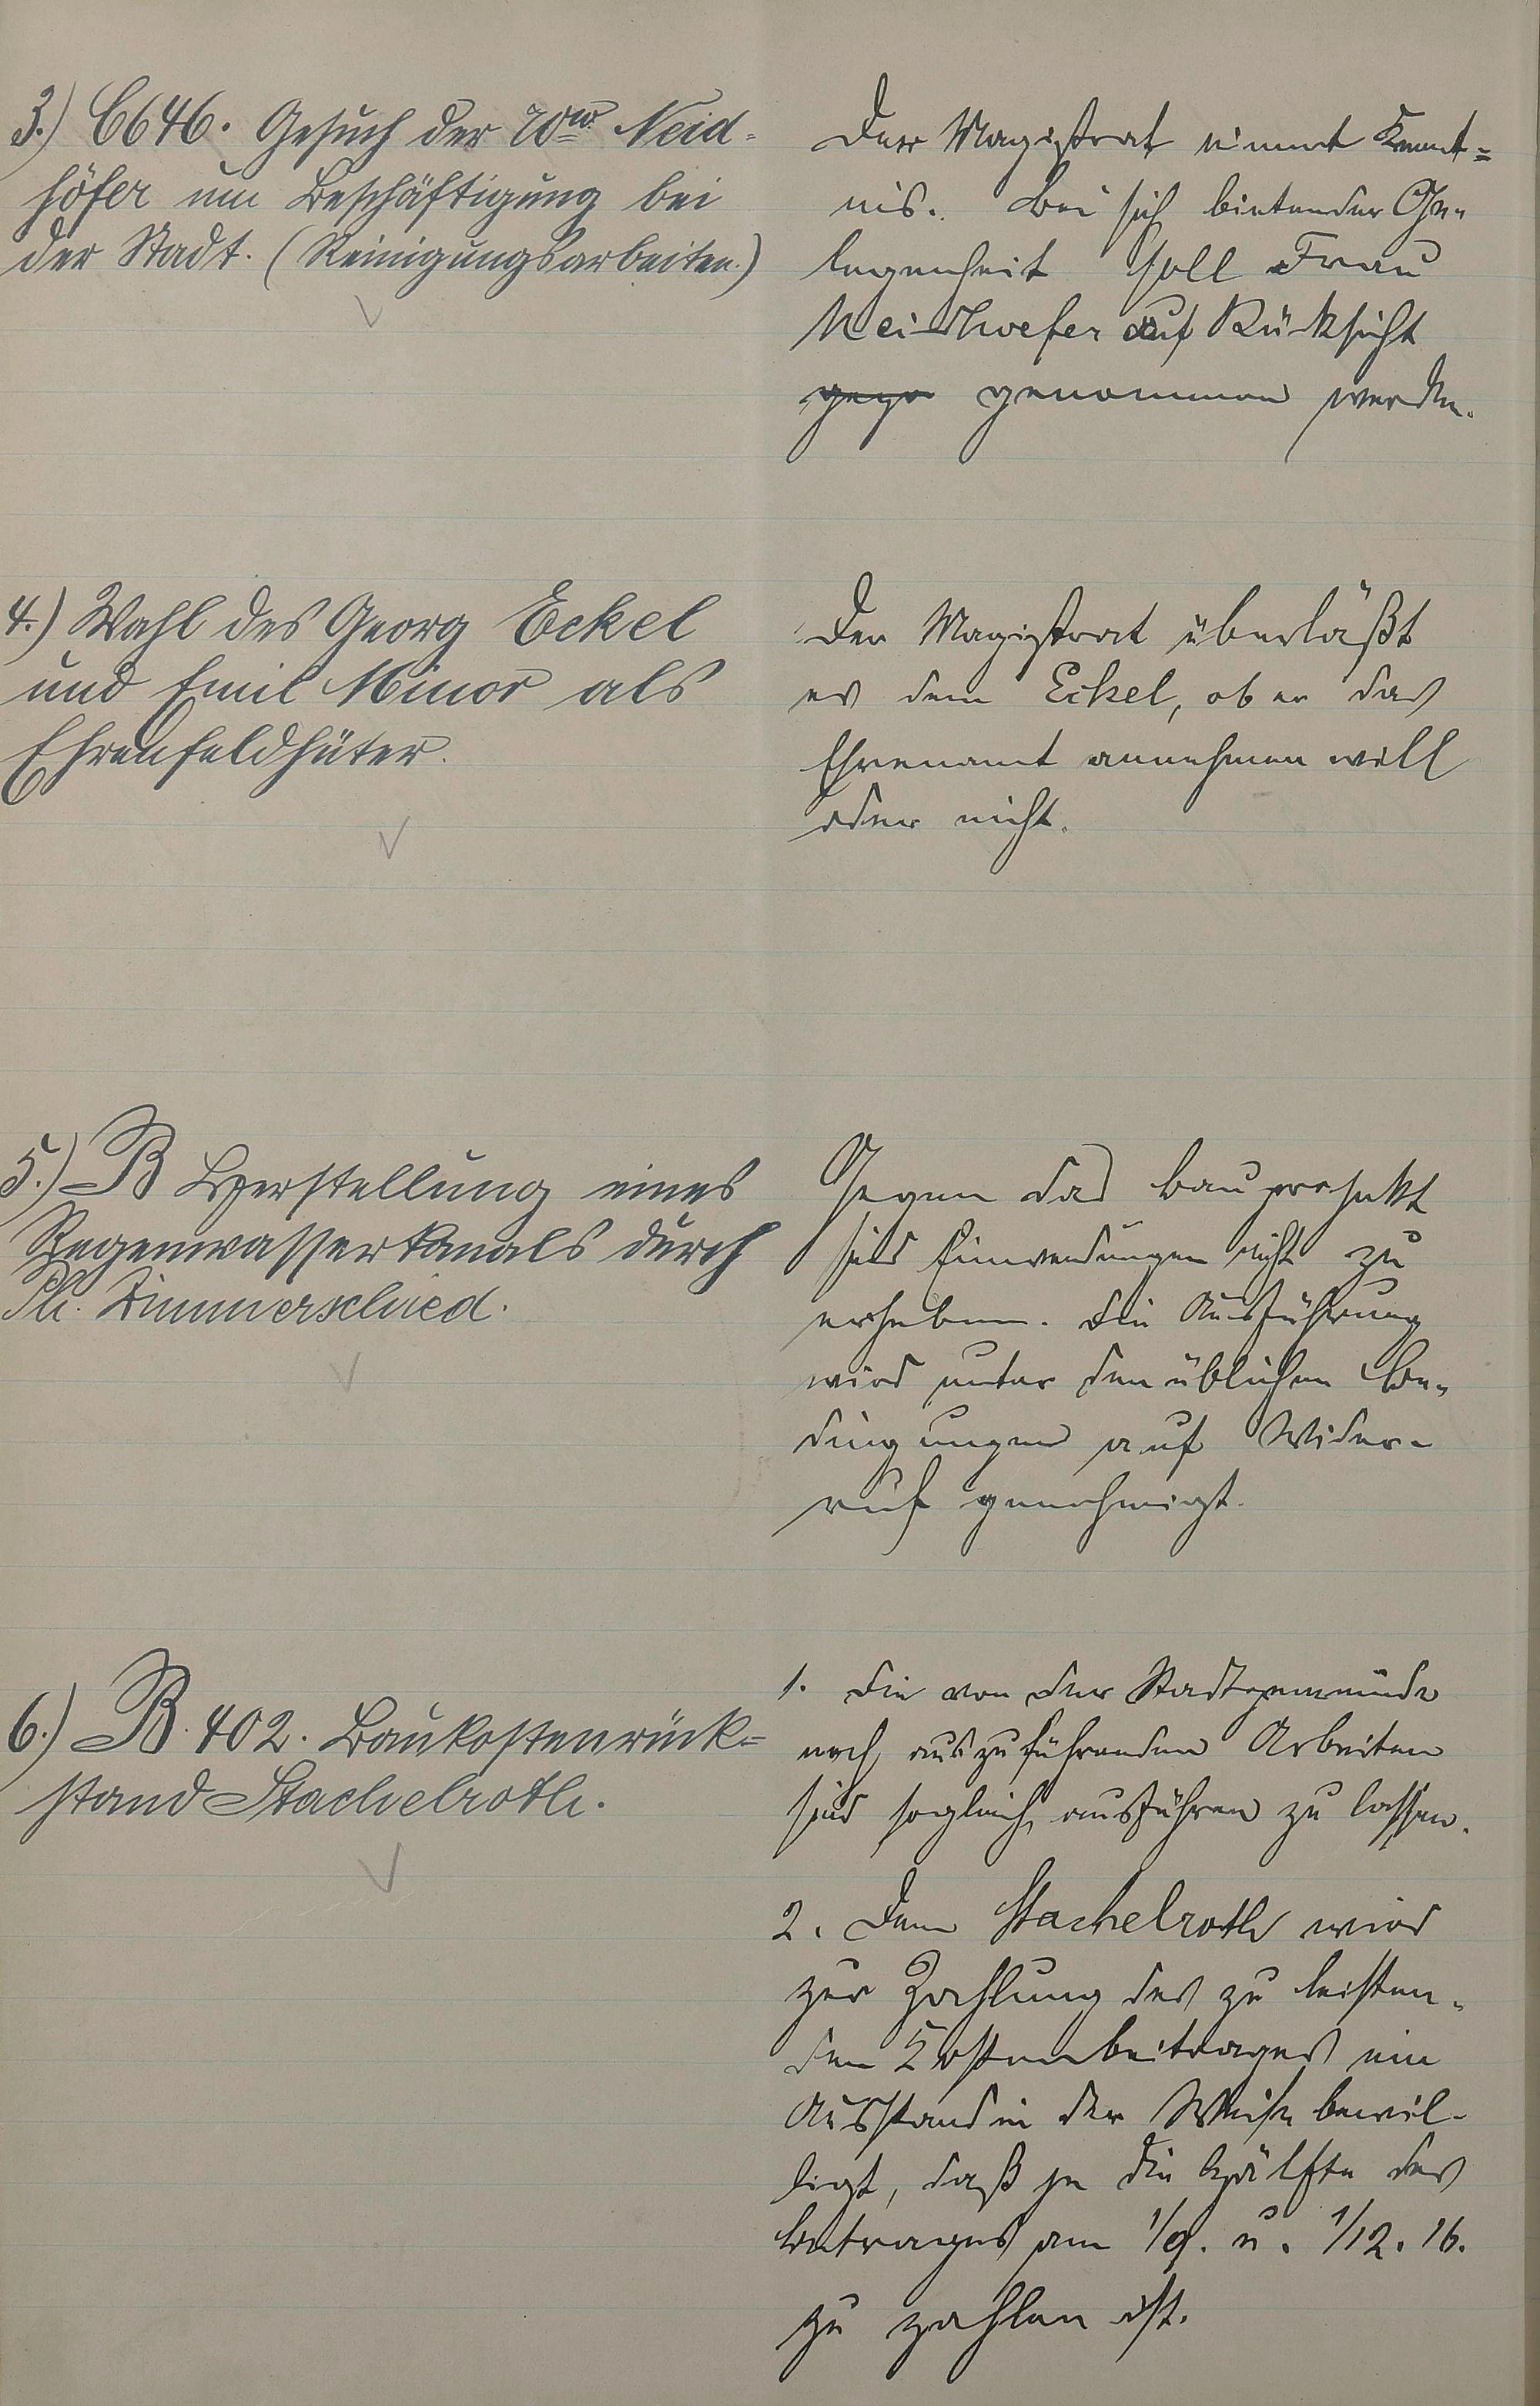 3.) C 646. Gesuch der Ww. Neid-
höfer um Beschäftigung bei
der Stadt. (Reinigungsarbeiten.)
Der Magistrat nimmt Kennt-
nis. Bei sich bietender Ge-
legenheit soll Frau
Neidhoefer auf Rücksicht
gege genommen werden.
4.) Wahl des Georg Eckel
und Emil Minor als
Ehrenfeldhüter.
Der Magistrat überläßt
es dem Eckel, ob er das
Ehrenamt annehmen will
oder nicht.
5.) B Herstellung eines
Regenwasserkanals durch
Ph. Zimmerschied.
Gegen das Bauprojekt
sind Einwendungen nicht zu
erheben. Die Ausführung
wird unter den üblichen Be-
dingungen auf Wider-
ruf genehmigt.
6.) B. 402. Baukostenrück-
stand Stachelroth.
1. Die von der Stadtgemeinde
noch auszuführenden Arbeiten
sind sogleich ausführen zu lassen.
2. Dem Stachelroth wird
zur Zahlung des zu leisten-
den Kostenbeitrages ein
Ausstand in der Weise bewil-
ligt, daß je die Hälfte des
Betrages am 1/9. u. 1/12. 16.
zu zahlen ist.